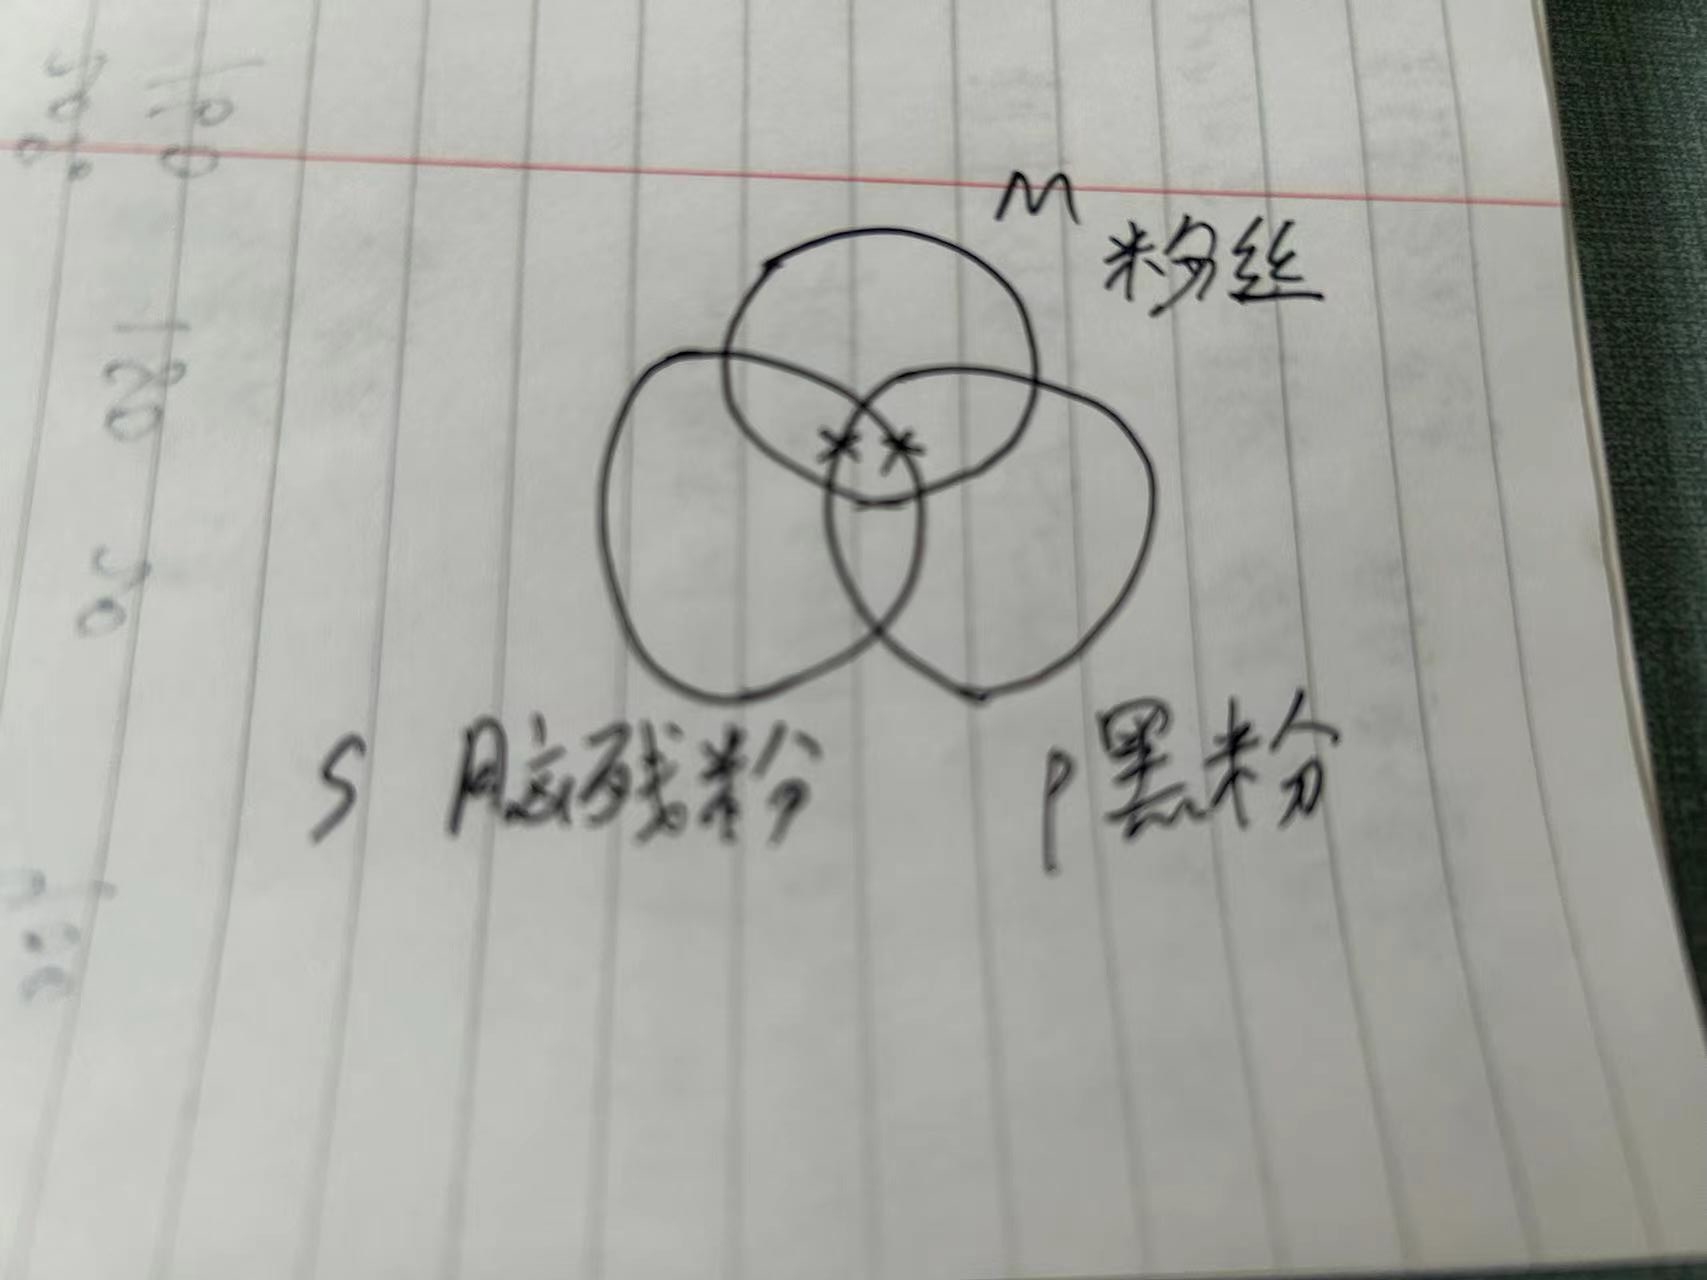 M
粉丝
S 脑残粉
P 黑粉